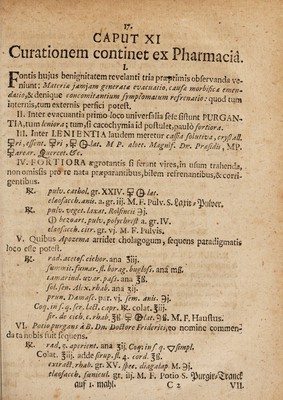 17.
CAPUT XI
Curationem continet ex Pharmaciâ.
I.
Fontis hujus benignitatem revelanti tria præprimis observanda ve-
niunt: Materia jamjam generata evacuatio, causa morbifica emen-
datio, & denique concomitantium symptomatum refrenatio: quod tum
internis, tum externis perfici potest.
II. Inter evacuantia primo loco universalia sese sistunt PURGAN-
TIA, tum leniora; tum, si cacochymia id postulet, paulò fortiora.
III. Inter LENIENTIA laudem meretur cassia solutiva, crystall.
IV. FORTIORA ægrotantis si ferant vires, in usum trahenda,
non omissis pro re nata præparantibus, bilem refrenantibus, & corri-
gentibus.
℞. pulv. cathol. gr. XXIV.
elæosacch. anis. a. gr. iij. M. F. Pulv. S. Laxir-Pulver.
℞. pulv. veget. laxat. Rolfincii ℈j.
bezoart. pulv. polychrest. a. gr. IV.
elæosacch. citr. gr. vj. M. F. Pulvis.
V. Quibus Apozema arridet cholagogum, sequens paradigmatis
loco esse potest.
℞. rad. acetos. cichor. ana ℥ij.
summit. fumar. fl. borag. bugloss. ana mß.
tamarind. uvar. pass. ana ℥ß.
fol. sen. Alex. rhab. ana ℥j.
prun. Damasc. par. vj. sem. anis. ℈j.
Coq. in s. q. ser. lact. capr. ℞. colat. ℥iij.
M. F. Haustus.
VI. Potio purgans à B. Dn. Doctore Friderici, eo nomine commen-
data nobis fuit sequens.
℞. rad. q. aperient. ana ℥ij. Coq. in s. q. simpl.
Colat. ℥iij. adde syrup. fl. q. cord. ℥ß.
extract. rhab. gr. XV. spec. diagalap. ℈j.
elæosach. fœnicul. gr. iij. M. F. Potio S. Purgir-Tranck
auf 1. mahl. C 2 VII.